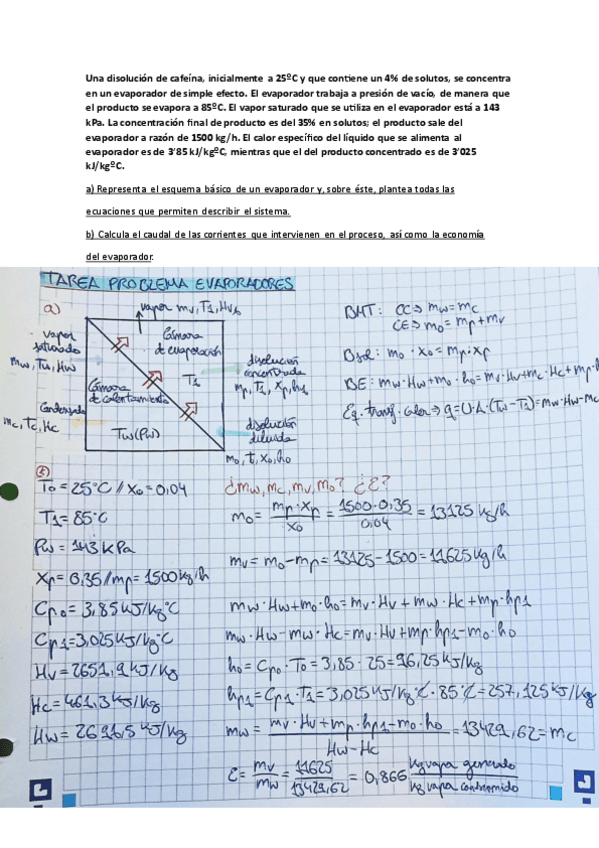 Una disolución de cafeína, inicialmente a 25ºC y que contiene un 4% de solutos, se concentra
en un evaporador de simple efecto. El evaporador trabaja a presión de vacío, de manera que
el producto se evapora a 85ºC. El vapor saturado que se utiliza en el evaporador está a 143
kPa. La concentración final de producto es del 35% en solutos; el producto sale del
evaporador a razón de 1500 kg/h. El calor específico del líquido que se alimenta al
evaporador es de 3’85 kJ/kgºC, mientras que el del producto concentrado es de 3’025
kJ/kgºC.
a) Representa el esquema básico de un evaporador y, sobre éste, plantea todas las
ecuaciones que permiten describir el sistema.
b) Calcula el caudal de las corrientes que intervienen en el proceso, así como la economía
del evaporador.
TAREA PROBLEMA EVAPORADORES
a)
vapor mv, T1, Hvb
vapor
saturado
mw, Tw, Hw
Cámara
de evaporación
T1
Cámara
de calentamiento
Tw(Pw)
Condensado
mc, Tc, Hc
disolución
concentrada
mp, T1, xp, hp1
disolución
diluida
mo, t, xo, ho
BMT: CC⇒ mw=mc
CE⇒ mo=mp+mv
Bsol: mo · xo = mp · xp
BE: mw·Hw+mo·ho=mv·Hv+mc·Hc+mp·h
Eq. transf. calor ⇒ q=U·A·(Tw-T1)=mw·Hw-mc
b)
To = 25°C // xo = 0,04
T1= 85°C
Pw = 143 kPa
Xp= 0,35 // mp= 1500 kg/h
Cpo = 3,85 kJ/kg°C
Cp1=3,025 kJ/kg°C
Hv = 2651,9 kJ/kg
Hc = 461,3 kJ/kg
Hw = 2691,5 kJ/kg
¿mw, mc, mv, mo? ¿ε?
mo = mp·xp / xo = 1500·0,35 / 0,04 = 13125 kg/h
mv = mo-mp = 13125-1500 = 11625 kg/h
mw·Hw+mo·ho=mv·Hv+mw·Hc+mp·hp1
mw·Hw-mw·Hc=mv·Hv+mp·hp1-mo·ho
ho= Cpo·To = 3,85·25=96,25 kJ/kg
hp1=Cp1·T1=3,025 kJ/kg°C·85°C=257,125 kJ/kg
mw = mv·Hv+mp·hp1-mo·ho / Hw-Hc = 13429,62=mc
ε= mv / mw = 11625 / 13429,62 = 0,866 kg vapor generado / kg vapor consumido